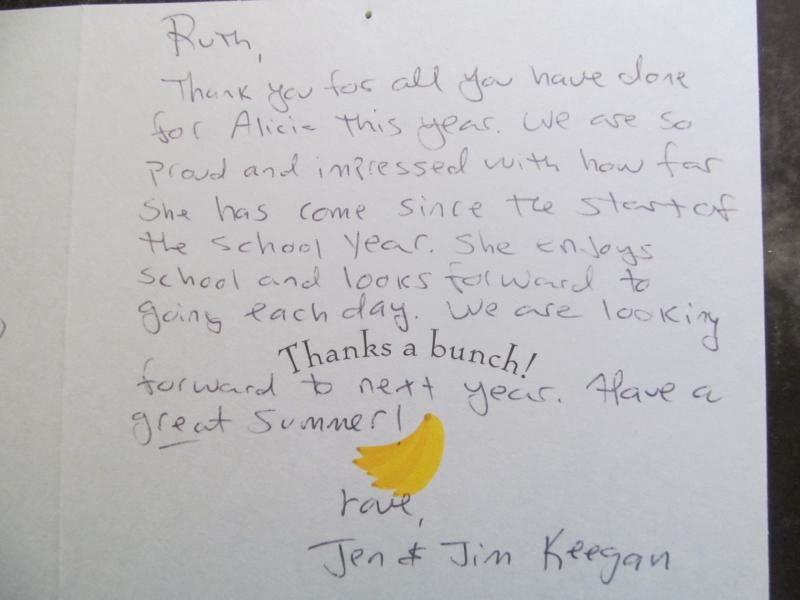 Ruth,
Thank you for all you have done
for Alicia this year. We are so
proud and impressed with how far
She has come since the start of
the school year. She enjoys
school and looks forward to
going each day. We are looking
Thanks a bunch!
forward to next year. Have a
great Summer!
Love,
Jen & Jim Keegan